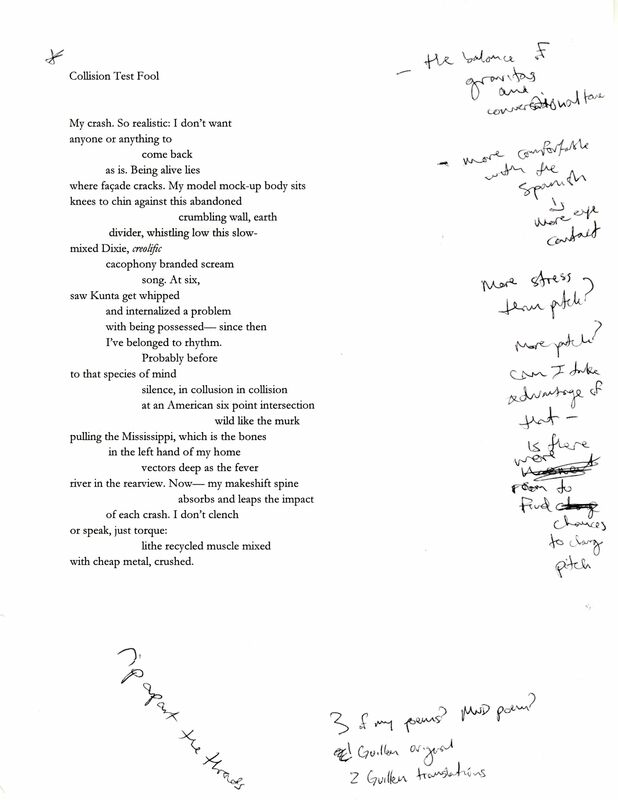 Collision Test Fool
My crash. So realistic: I don't want
anyone or anything to
come back
as is. Being alive lies
where façade cracks. My model mock-up body sits
knees to chin against this abandoned
crumbling wall, earth
divider, whistling low this slow-
mixed Dixie, creolific
cacophony branded scream
song. At six,
saw Kunta get whipped
and internalized a problem
with being possessed— since then
I've belonged to rhythm.
Probably before
to that species of mind
silence, in collusion in collision
at an American six point intersection
wild like the murk
pulling the Mississippi, which is the bones
in the left hand of my home
vectors deep as the fever
river in the rearview. Now— my makeshift spine
absorbs and leaps the impact
of each crash. I don't clench
or speak, just torque:
lithe recycled muscle mixed
with cheap metal, crushed.
– the balance of
gravitas
and
conversational tone
– more comfortable
with the
Spanish
more eye
contact
More stress
term pitch?
More pitch?
can I take
advantage of
that –
Is there
more
room to
find
chances
to
pitch
rip apart the threads
3 of my poems? MWD poem?
1 Guillen original
2 Guillen translations